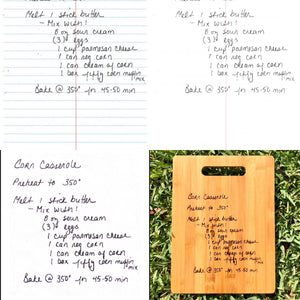 Melt 1 stick butter
- Mix with!
8 oz sour cream
(3) eggs
1 cup parmesan cheese
1 can reg corn
1 can cream of corn
1 box jiffy corn muffin
mix
Bake @ 350° for 45-50 min
Melt 1 stick butter
- Mix with!
8 oz sour cream
(3) eggs
1 cup parmesan cheese
1 can reg corn
1 can cream of corn
1 box jiffy corn muffin
mix
Bake @ 350° for 45-50 min
Corn Casserole
Preheat to 350°
Melt 1 stick butter
- Mix with!
8 oz sour cream
(3) eggs
1 cup parmesan cheese
1 can reg corn
1 can cream of corn
1 box jiffy corn muffin
mix
Bake @ 350° for 45-50 min
Corn Casserole
Preheat to 350°
Melt 1 stick butter
- Mix with!
8 oz sour cream
(3) eggs
1 cup parmesan cheese
1 can reg corn
1 can cream of corn
1 box jiffy corn muffin
mix
Bake @ 350° for 45-50 min